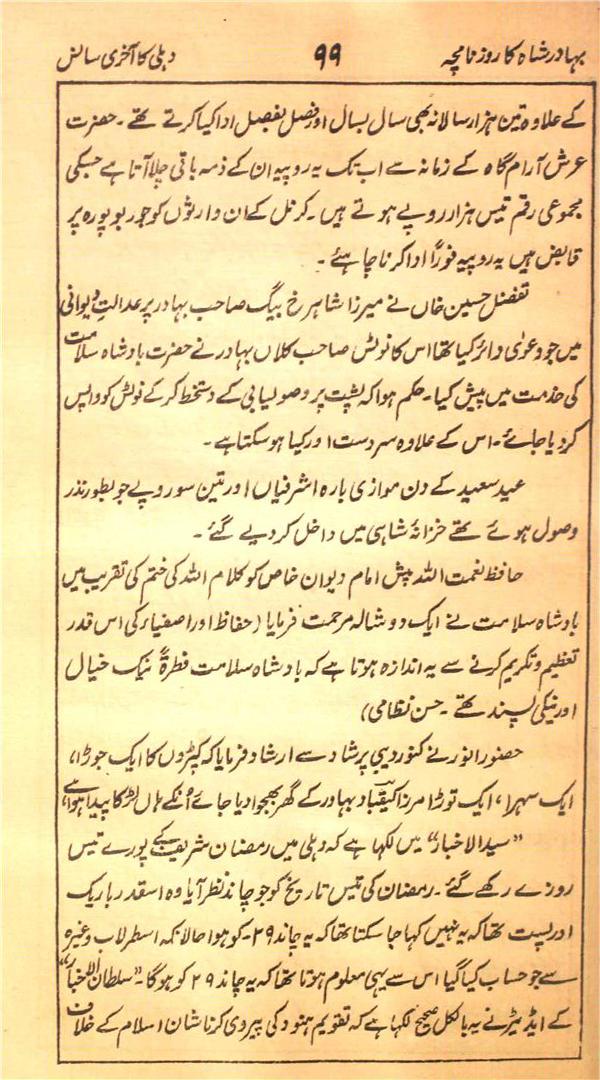 بہادر شاہ کا روزنامچہ ۹۹ دہلی کا آخری سانس
کے علاوہ تین ہزار سالانہ بھی سال بسال اور فصل بفصل ادا کیا کرتے تھے۔ حضرت
عرش آرام گاہ کے زمانہ سے اب تک یہ روپیہ ان کے ذمہ باقی چلا آتا ہے جسکی
مجموعی رقم تیس ہزار روپے ہوتے ہیں۔ کرنل کے ان وارثوں کو جو ربوپورہ پر
قابض ہیں یہ روپیہ فوراً ادا کرنا چاہئے۔
تفضل حسین خاں نے میرزا شاہرخ بیگ صاحب بہادر پر عدالت دیوانی
میں جو دعویٰ دائر کیا تھا اس کا نوٹس صاحب کلاں بہادر نے حضرت بادشاہ سلامت
کی خدمت میں پیش کیا۔ حکم ہوا کہ پشت پر وصولیابی کے دستخط کر کے نوٹس کو واپس
کر دیا جائے۔ اس کے علاوہ سردست اور کیا ہو سکتا ہے۔
عید سعید کے دن موازی بارہ اشرفیاں اور تین سو روپے جو بطور نذر
وصول ہوئے تھے خزانۂ شاہی میں داخل کر دیے گئے۔
حافظ نعمت اللہ پیش امام دیوان خاص کو کلام اللہ کی ختم کی تقریب میں
بادشاہ سلامت نے ایک دوشالہ مرحمت فرمایا (حفاظ اور اصفیاء کی اس قدر
تعظیم و تکریم کرنے سے یہ اندازہ ہوتا ہے کہ بادشاہ سلامت فطرۃً نیک خیال
اور نیکی پسند تھے۔ حسن نظامی)
حضور انور نے کنور دیبی پرشاد سے ارشاد فرمایا کہ کپڑوں کا ایک جوڑا،
ایک سہرا، ایک توڑا مرزا کیقباد بہادر کے گھر بھجوا دیا جائے اُنکے ہاں لڑکا پیدا ہوا ہے،
”سید الاخبار“ میں لکہا ہے کہ دہلی میں رمضان شریف کے پورے تیس
روزے رکھے گئے۔ رمضان کی تیس تاریخ کو جو چاند نظر آیا وہ اسقدر باریک
اور پست تھا کہ یہ نہیں کہا جا سکتا تھا کہ یہ چاند ۲۹۔ کو ہوا حالانکہ اسطرلاب وغیرہ
سے جو حساب کیا گیا اس سے یہی معلوم ہوتا تھا کہ یہ چاند ۲۹ کو ہو گا۔ ”سلطان الاخبار“
کے ایڈیٹر نے یہ بالکل صحیح لکہا ہے کہ تقویم ہنود کی پیروی کرنا شان اسلام کے خلاف